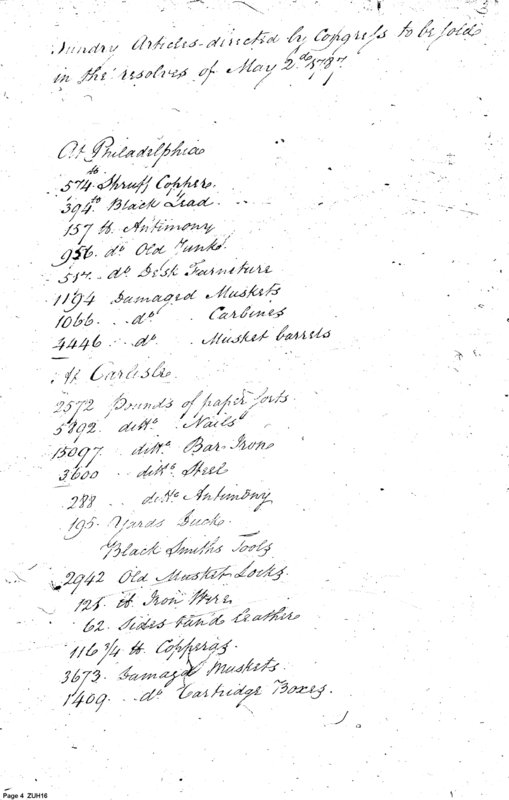 Sundry Articles directed by Congress to be sold
in the resolves of May 2.d 1787
At Philadelphia
574 lb Shruff Copper
394 lb Black Lead
157 lb Antimony
956 do Old Junk
do Desk Furneture
1194 Damaged Muskets
1066 do Carbines
4446 do Musket barrels
At Carlisle
2572 Pounds of paper sorts
5892 ditto Nails
15097 ditto Bar Iron
3600 ditto Steel
288 ditto Antimony
195 Yards Duck
Black Smiths Tools
2942 Old Musket Locks
125 lb Iron Wire
62 Sides Leather
116 3/4 lb Copperas
3673 Damaged Muskets
1409 do Cartridge Boxes.
Page 4 ZUH16